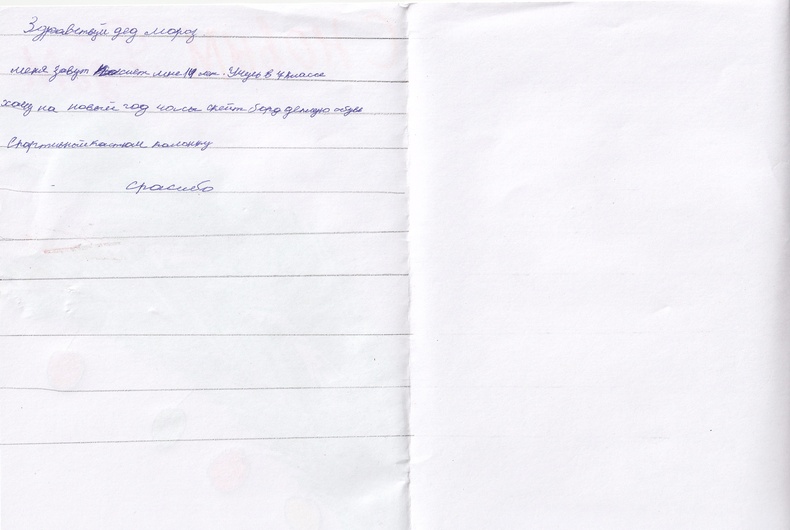 Здравствуй дед мороз
меня зовут мне 14 лет. Учусь в 4 классе
хочу на новый год часы скейт борд
Спортивный костюм колонку
Спасибо